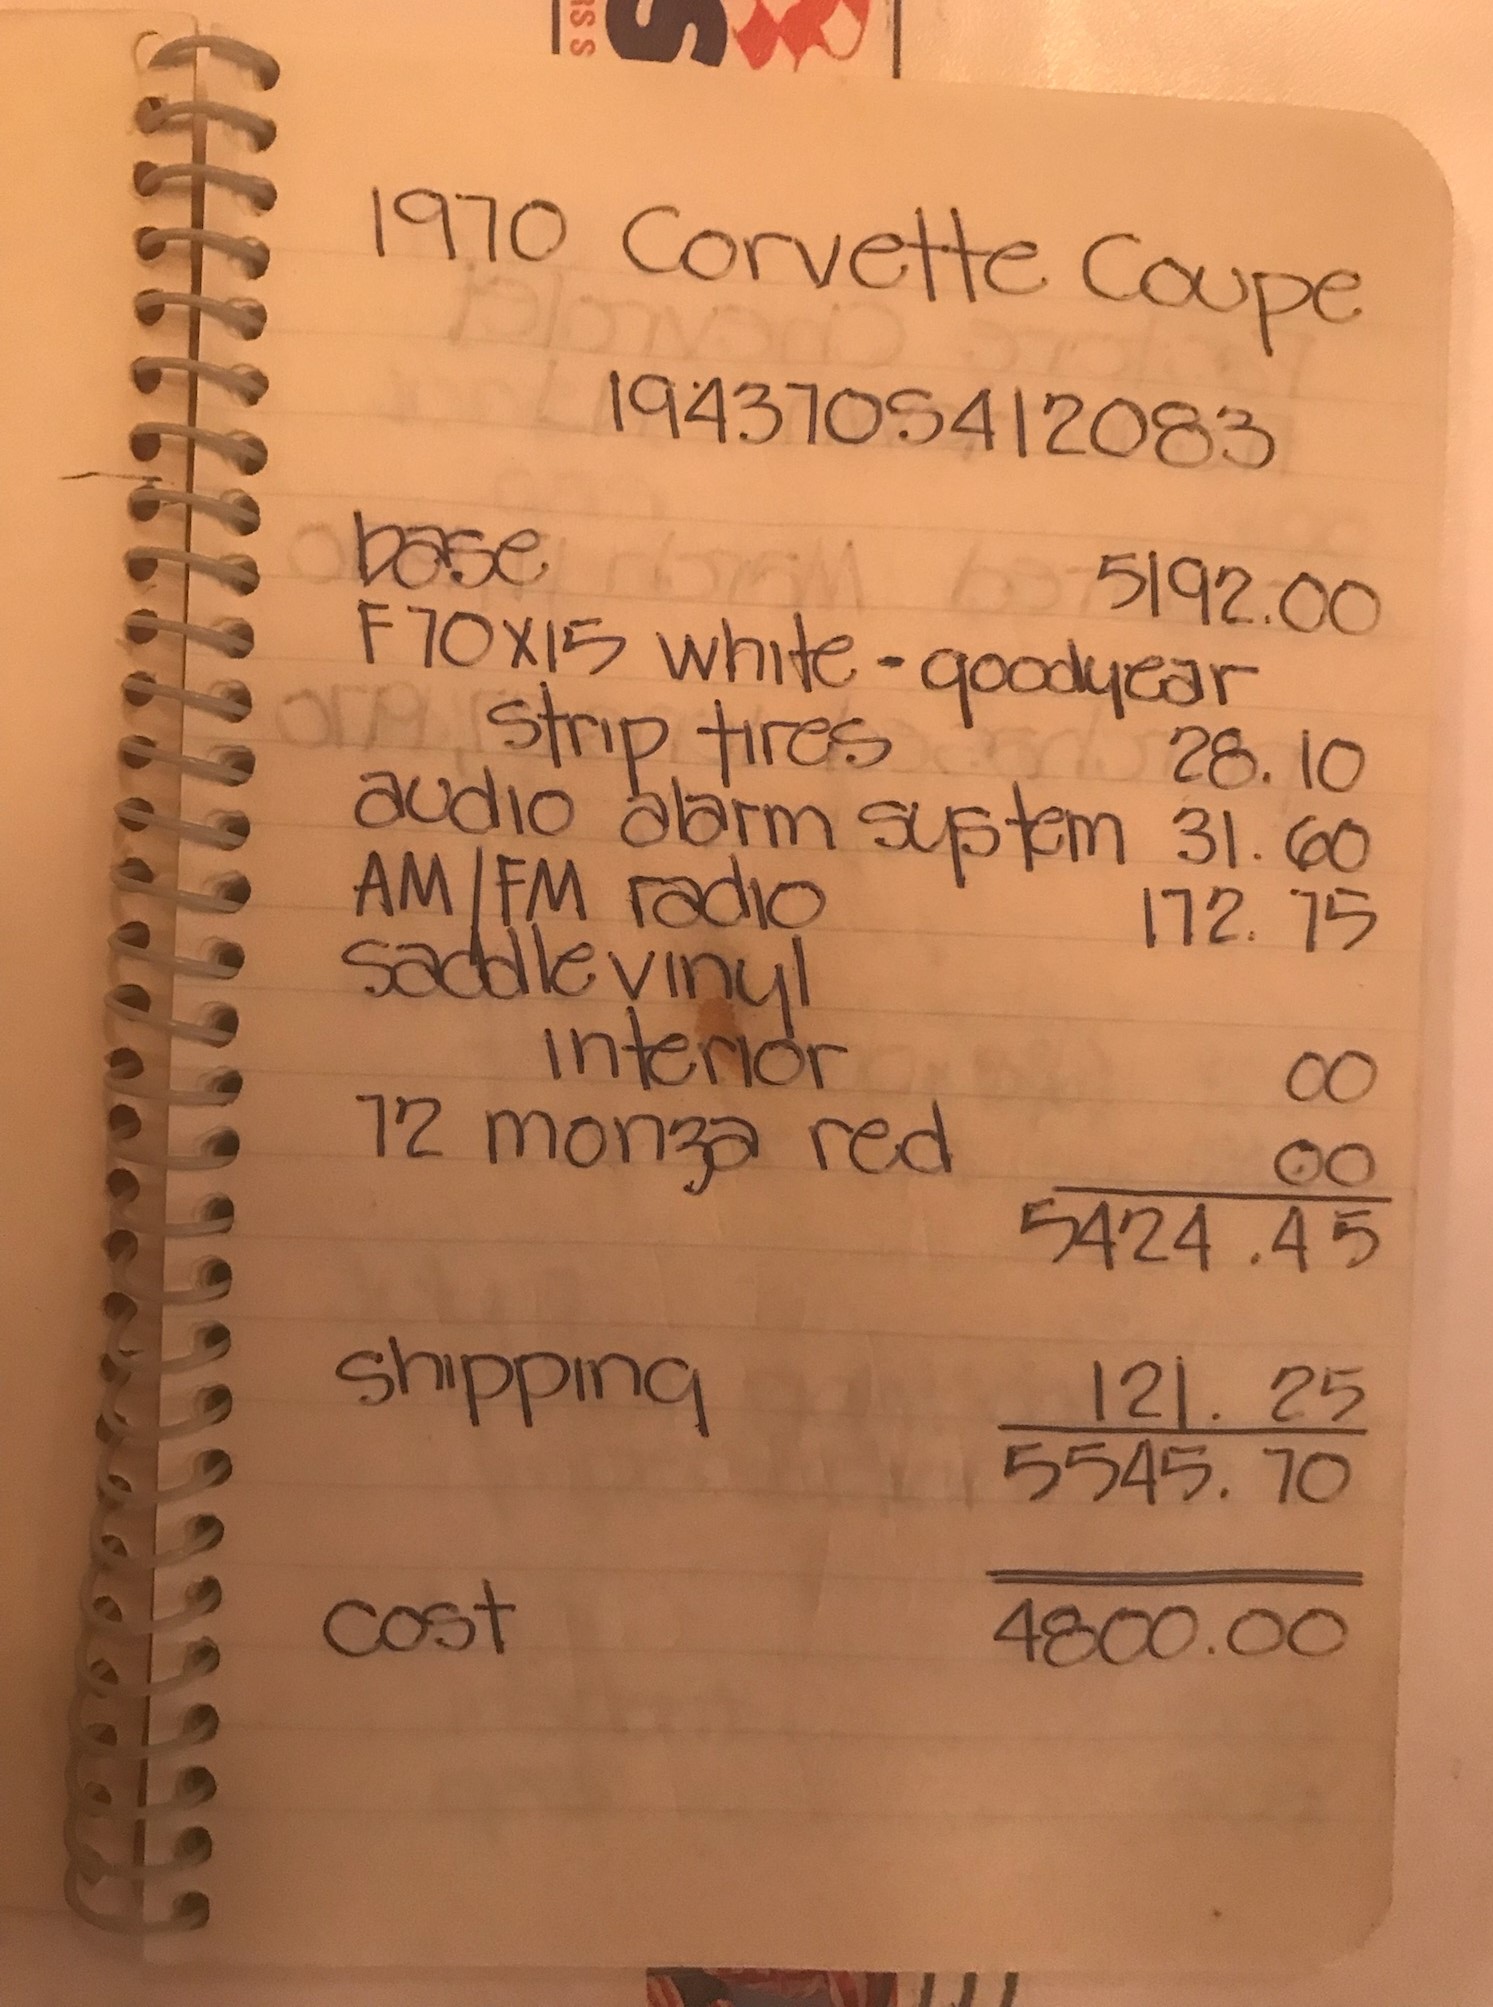 1970 Corvette Coupe
194370S412083
base 5192.00
F70X15 white - goodyear
strip tires 28.10
audio alarm system 31.60
AM/FM radio 172.75
saddle vinyl
interior 00
72 monza red 00
5424.45
shipping 121.25
5545.70
cost 4800.00